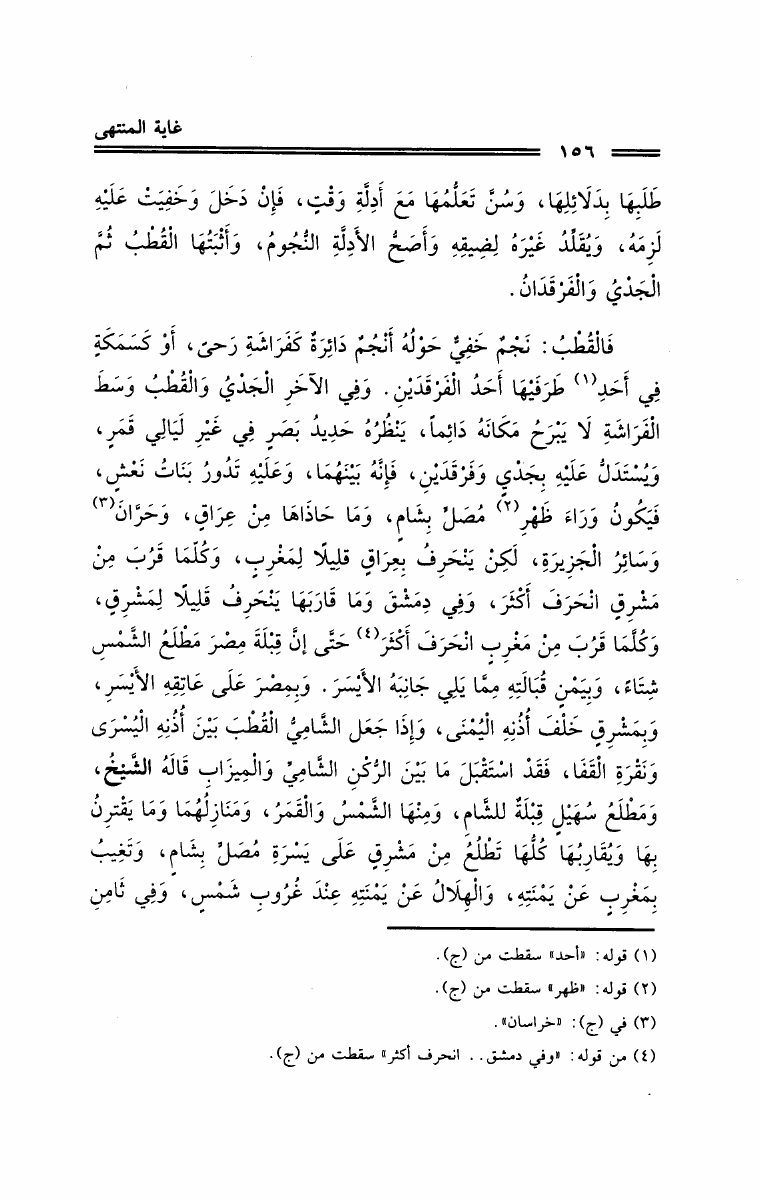 غاية المنتهى
١٥٦
طَلَبِهَا بِدَلَائِلِهَا، وَسُنَّ تَعَلُّمُهَا مَعَ أَدِلَّةِ وَقْتٍ، فَإِنْ دَخَلَ وَخَفِيَتْ عَلَيْهِ
لَزِمَهُ، وَيُقَلِّدُ غَيْرَهُ لِضِيقِهِ وَأَصَحُّ الأَدِلَّةِ النُّجُومُ، وَأَثْبَتُهَا الْقُطْبُ ثُمَّ
الْجَدْيُ وَالْفَرْقَدَانُ.
فَالْقُطْبُ: نَجْمٌ خَفِيٌّ حَوْلَهُ أَنْجُمٌ دَائِرَةٌ كَفَرَاشَةِ رَحىً، أَوْ كَسَمَكَةٍ
فِي أَحَدِ(١) طَرَفَيْهَا أَحَدُ الْفَرْقَدَيْنِ. وَفِي الآخَرِ الْجَدْيُ وَالْقُطْبُ وَسَطَ
الْفَرَاشَةِ لَا يَبْرَحُ مَكَانَهُ دَائِماً، يَنْظُرُهُ حَدِيدُ بَصَرٍ فِي غَيْرِ لَيَالِي قَمَرٍ،
وَيُسْتَدَلُّ عَلَيْهِ بِجَدْيٍ وَفَرْقَدَيْنِ، فَإِنَّهُ بَيْنَهُمَا، وَعَلَيْهِ تَدُورُ بَنَاتُ نَعْشٍ،
فَيَكُونُ وَرَاءَ ظَهْرِ(٢) مُصَلٍّ بِشَامٍ، وَمَا حَاذَاهَا مِنْ عِرَاقٍ، وَحَرَّانَ(٣)
وَسَائِرُ الْجَزِيرَةِ، لَكِنْ يَنْحَرِفُ بِعِرَاقٍ قلِيلًا لِمَغْرِبٍ، وَكُلَّمَا قَرُبَ مِنْ
مَشْرِقٍ انْحَرَفَ أَكْثَرَ، وَفِي دِمَشْقَ وَمَا قَارَبَهَا يَنْحَرِفُ قَلِيلًا لِمَشْرِقٍ،
وَكُلَّمَا قَرُبَ مِنْ مَغْرِبٍ انْحَرَفَ أَكْثَرَ(٤) حَتَّى إنَّ قِبْلَةَ مِصْرَ مَطْلَعُ الشَّمْسِ
شِتَاءً، وَبِيَمْنٍ قُبَالَتِهِ مِمَّا يَلِي جَانِبَهُ الأَيْسَرَ. وَبِمِصْرَ عَلَى عَاتِقِهِ الأَيْسَرِ،
وَبِمَشْرِقٍ خَلْفَ أُذُنِهِ الْيُمْنَى، وَإِذَا جَعَل الشَّامِيُّ الْقُطْبَ بَيْنَ أُذُنِهِ الْيُسْرَى
وَنَقْرَةِ الْقَفَا، فَقَدْ اسْتَقْبَلَ مَا بَيْنَ الرُّكْنِ الشَّامِيِّ وَالْمِيزَابِ قَالَهُ الشَّيْخُ،
وَمَطْلَعُ سُهَيْلٍ قِبْلَةٌ للشَّامِ، وَمِنْهَا الشَّمْسُ وَالْقَمَرُ، وَمَنَازِلُهُمَا وَمَا يَقْتَرِنُ
بِهَا وَيُقَارِبُهَا كُلُّهَا تَطْلُعُ مِنْ مَشْرِقٍ عَلَى يَسْرَةِ مُصَلٍّ بِشَامٍ، وَتَغِيبُ
بِمَغْرِبٍ عَنْ يَمْنَتِهِ، وَالْهِلَالُ عَنْ يَمْنَتِهِ عِنْدَ غُرُوبِ شَمْسٍ، وَفِي ثَامِنِ
(١) قوله: «أحد» سقطت من (ج).
(٢) قوله: «ظهر» سقطت من (ج).
(٣) في (ج): «خراسان».
(٤) من قوله: «وفي دمشق.. انحرف أكثر» سقطت من (ج).